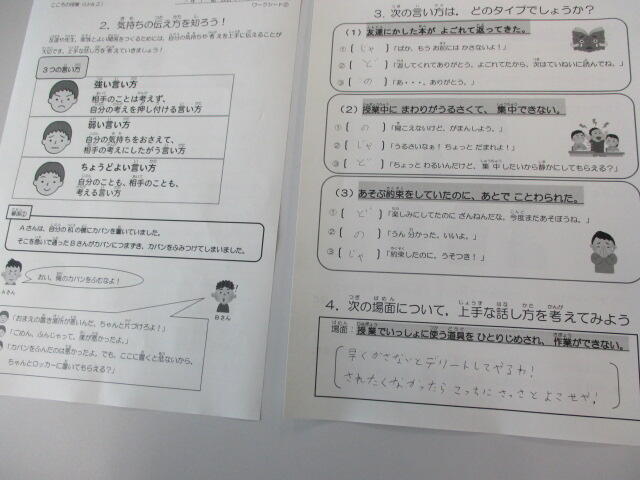 こころの授業
ワークシート②
2. 気持ちの伝え方を知ろう！
3つの言い方
強い言い方
相手のことは考えず、
自分の考えを押し付ける言い方
弱い言い方
自分の気持ちをおさえて、
相手の考えにしたがう言い方
ちょうどよい言い方
自分のことも、相手のことも、
考える言い方
Aさんは、自分の机の横にカバンを置いていました。
そこを急いで通ったBさんがカバンにつまずき、カバンをふみつけてしまいました。
おい、俺のカバンをふむなよ！
Aさん
Bさん
「おまえの置き場所が悪いんだ、ちゃんと片づけろよ！」
「ごめん、ふんじゃって、僕が悪かったよ。」
「カバンをふんだのは悪かったよ、でも、ここに置くと危ないから、
ちゃんとロッカーに置いてもらえる？」
3. 次の言い方は、どのタイプでしょうか？
(1) 友達にかした本が よごれて返ってきた。
① [ じゃ ] 「ばか、もう お前には かさないよ！」
② [ ど ] 「返してくれてありがとう。よごれてたから、次はていねいに読んでね。」
③ [ の ] 「あ・・・、ありがとう。」
(2) 授業中に まわりがうるさくて、集中できない。
① [ の ] 「聞こえないけど、がまんしよう。」
② [ じゃ ] 「うるさいなぁ！ ちょっと だまれよ！」
③ [ ど ] 「ちょっと わるいんだけど、集中したいから静かにしてもらえる？」
(3) あそぶ約束をしていたのに、あとで ことわられた。
① [ ど ] 「楽しみにしてたのに ざんねんだな。今度またあそぼうね。」
② [ の ] 「うん 分かった。いいよ。」
③ [ じゃ ] 「約束したのに、うそつき！」
4. 次の場面について、上手な話し方を考えてみよう
場面：授業でいっしょに使う道具を ひとりじめされ、作業ができない。
早くかさないとデリートしてやるわ！
されたくなかったら こっちに さっさと よこせや！